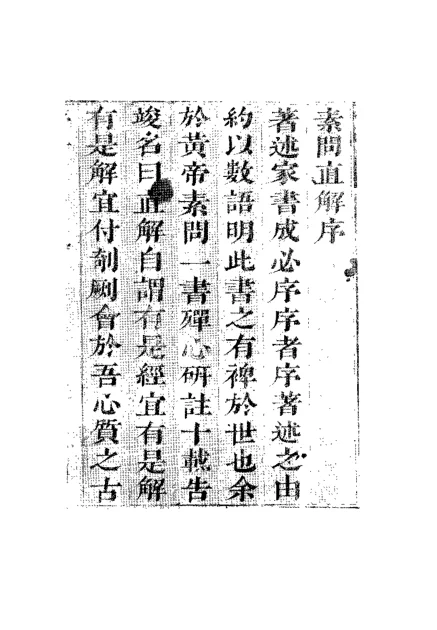 素問直解序
著述家書成必序序者序著述之由
約以數語明此書之有裨於世也余
於黃帝素問一書殫心研註十載告
竣名曰直解自謂有是經宜有是解
有是解宜付剞劂會於吾心質之古